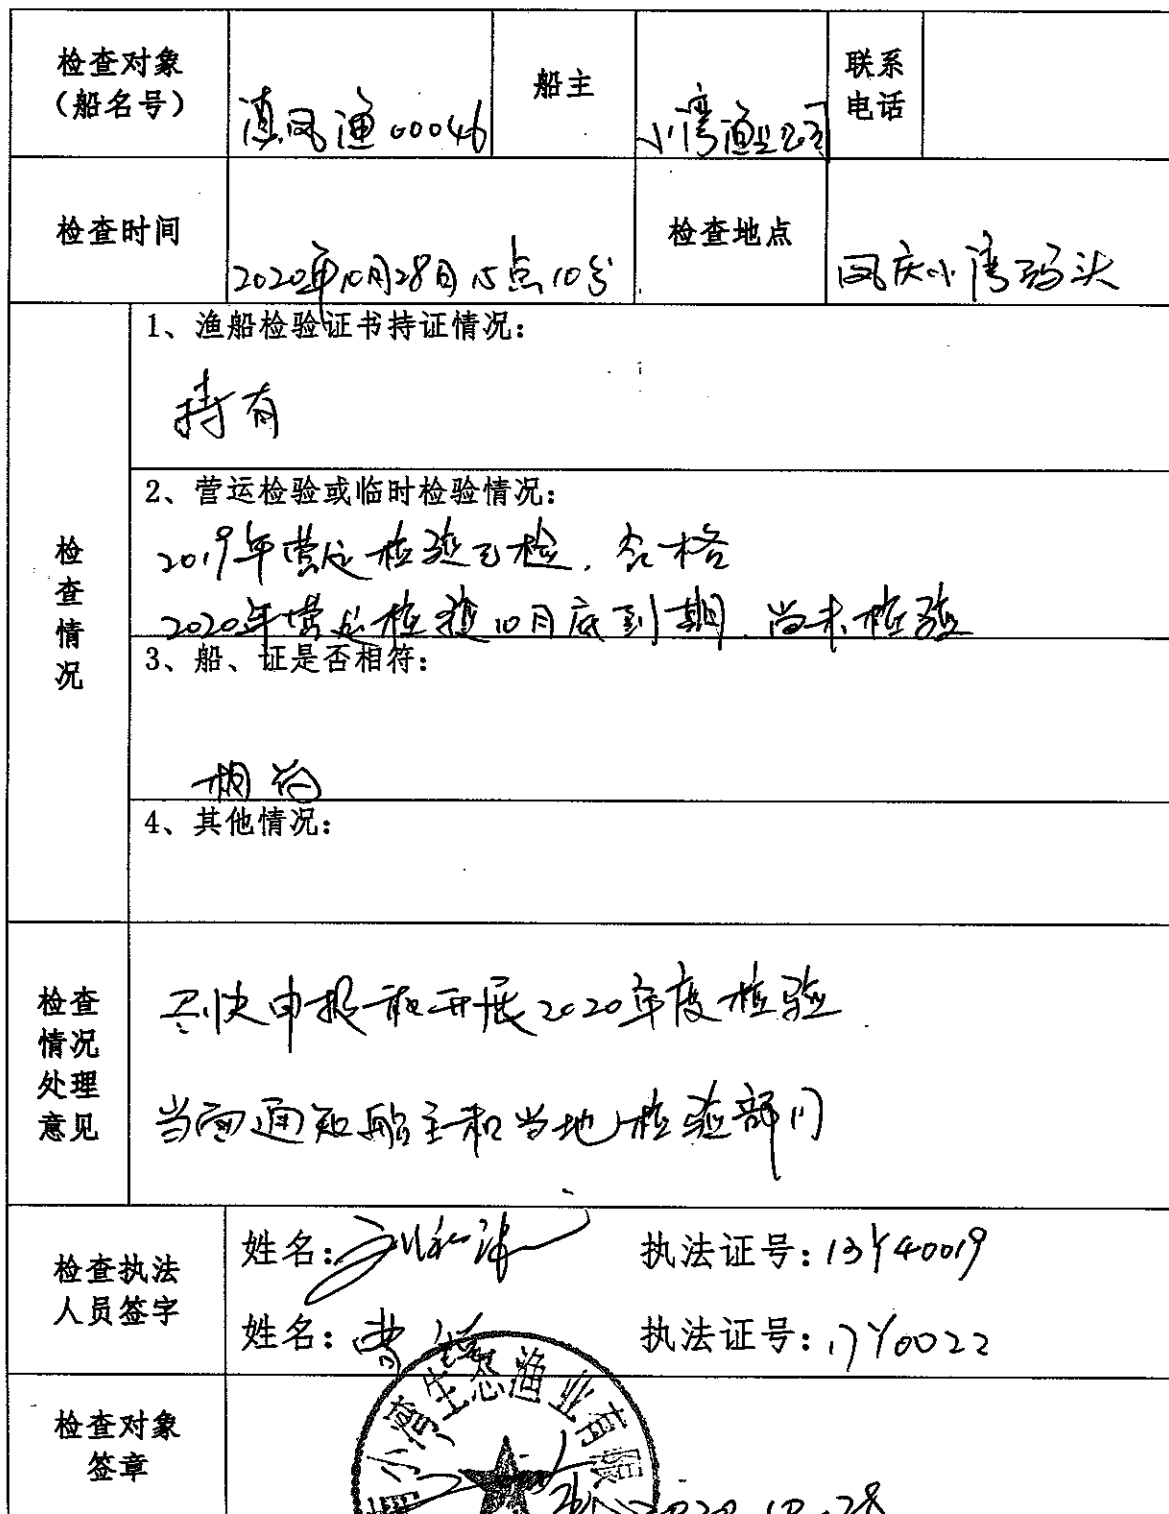 检查对象
（船名号）
滇凤渔00046
船主
小湾渔业公司
联系
电话
检查时间
2020年10月28日15点10分
检查地点
凤庆小湾码头
检查情况
1、渔船检验证书持证情况：
持有
2、营运检验或临时检验情况：
2019年营运检验已检，合格
2020年营运检验10月底到期，尚未检验
3、船、证是否相符：
相符
4、其他情况：
检查
情况
处理
意见
尽快申报和开展2020年度检验
当面通知船主和当地检验部门
检查执法
人员签字
姓名：
执法证号：13Y40019
姓名：曹
执法证号：17Y0022
检查对象
签章
小湾生态渔业有限
2020.10.28